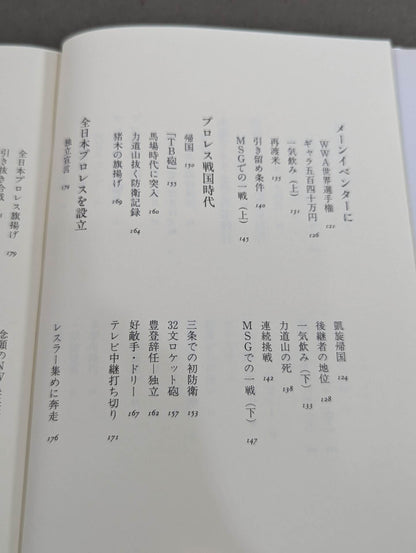 メーンイベンターに
WWA世界選手権 121
凱旋帰国 124
ギャラ五百四十万円 126
後継者の地位 128
一気飲み（上） 131
一気飲み（下） 133
再渡米 135
力道山の死 138
引き留め条件 140
連続挑戦 142
MSGでの一戦（上） 145
MSGでの一戦（下） 147
プロレス戦国時代
帰国 150
三条での初防衛 153
「TB砲」 155
32文ロケット砲 157
馬場時代に突入 160
豊登辞任―独立 162
力道山抜く防衛記録 164
好敵手・ドリー 167
猪木の旗揚げ 169
テレビ中継打ち切り 171
全日本プロレスを設立
独立宣言
レスラー集めに奔走 176
全日本プロレス旗揚げ 179
念願のNW
引き抜き合戦